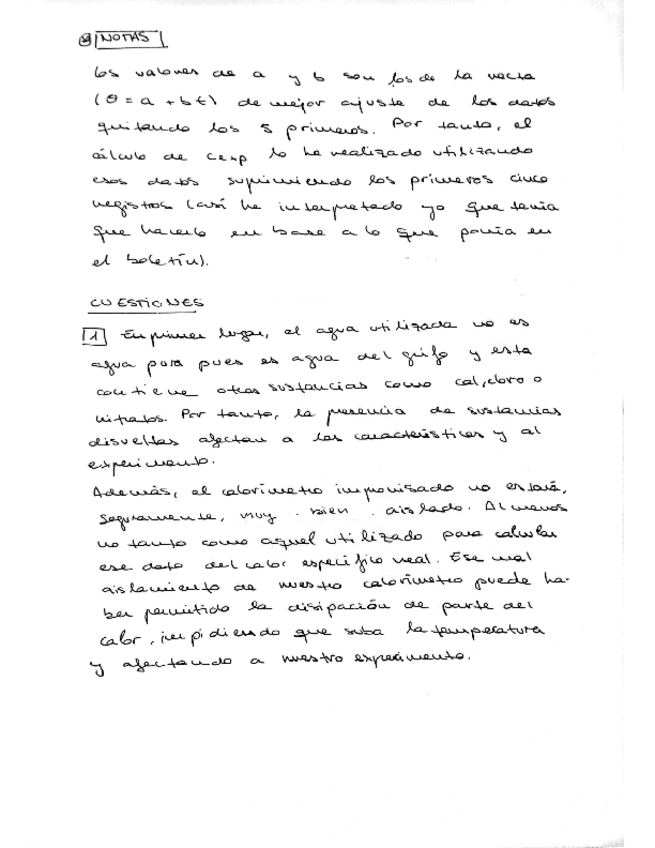 NOTAS
Los valores de a y b son los de la recta
(θ = a + bt) de mejor ajuste de los datos
quitando los 5 primeros. Por tanto, el
cálculo de Cexp lo he realizado utilizando
esos datos suprimiendo los primeros cinco
registros (así he interpretado yo que tenía
que hacerlo en base a lo que ponía en
el boletín).
CUESTIONES
1 En primer lugar, el agua utilizada no es
agua pura pues es agua del grifo y esta
contiene otras sustancias como cal, cloro o
nitratos. Por tanto, la presencia de sustancias
disueltas afectan a las características y al
experimento.
Además, el calorímetro improvisado no estará,
seguramente, muy bien aislado. Al menos
no tanto como aquel utilizado para calcular
ese dato del calor específico real. Ese mal
aislamiento de nuestro calorímetro puede ha-
ber permitido la disipación de parte del
calor, impidiendo que suba la temperatura
y afectando a nuestro experimento.